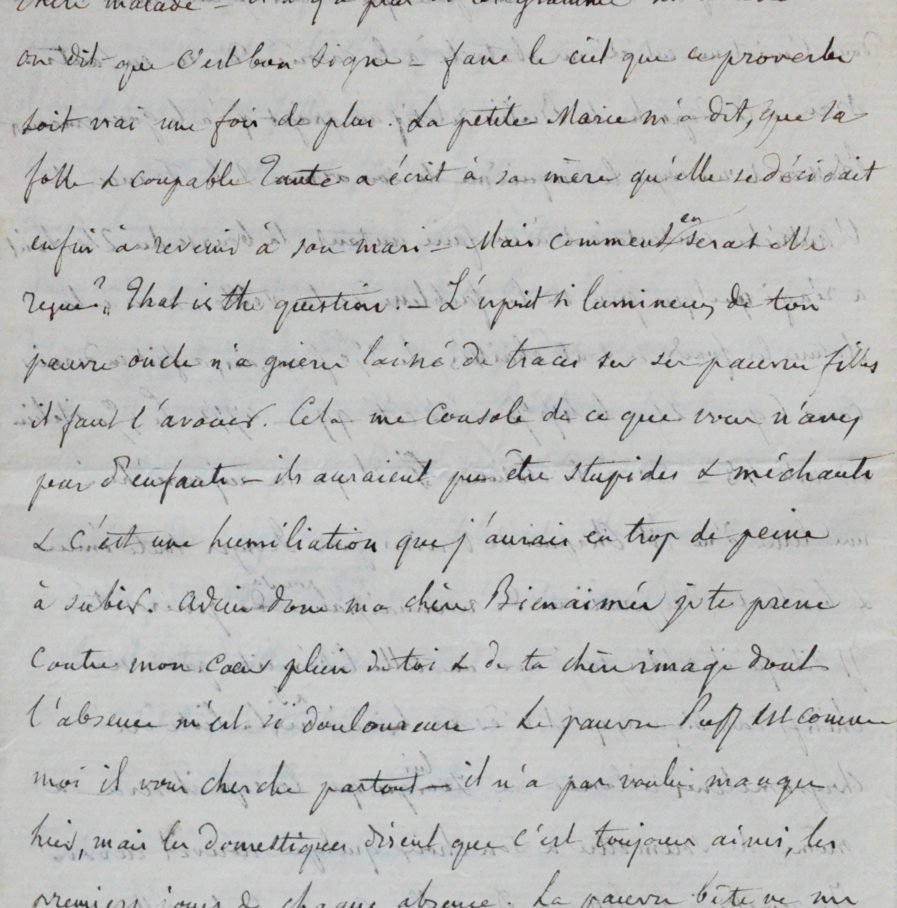 chère malade —
on dit que c'est bon signe — fasse le ciel que ce proverbe
soit vrai une fois de plus. La petite Marie m'a dit, que sa
folle & coupable Tante a écrit à sa mère qu'elle se décidait
enfin à revenir à son mari — Mais comment en serat elle
reçue? That is the question. — L'esprit si lumineux de ton
pauvre oncle n'a guère laissé de traces sur ses pauvres filles
il faut l'avouer. Cela me console de ce que vous n'avez
pas d'enfants — ils auraient pu être stupides & méchants
& c'est une humiliation que j'aurais eu trop de peine
à subir. Adieu donc ma chère Bienaimée je te presse
contre mon cœur plein de toi & de ta chère image dont
l'absence m'est si douloureuse — Le pauvre Puff est comme
moi il vous cherche partout — il n'a pas voulu manger
hier, mais les domestiques disent que c'est toujours ainsi, les
premiers jours de chaque absence. La pauvre bête ne me